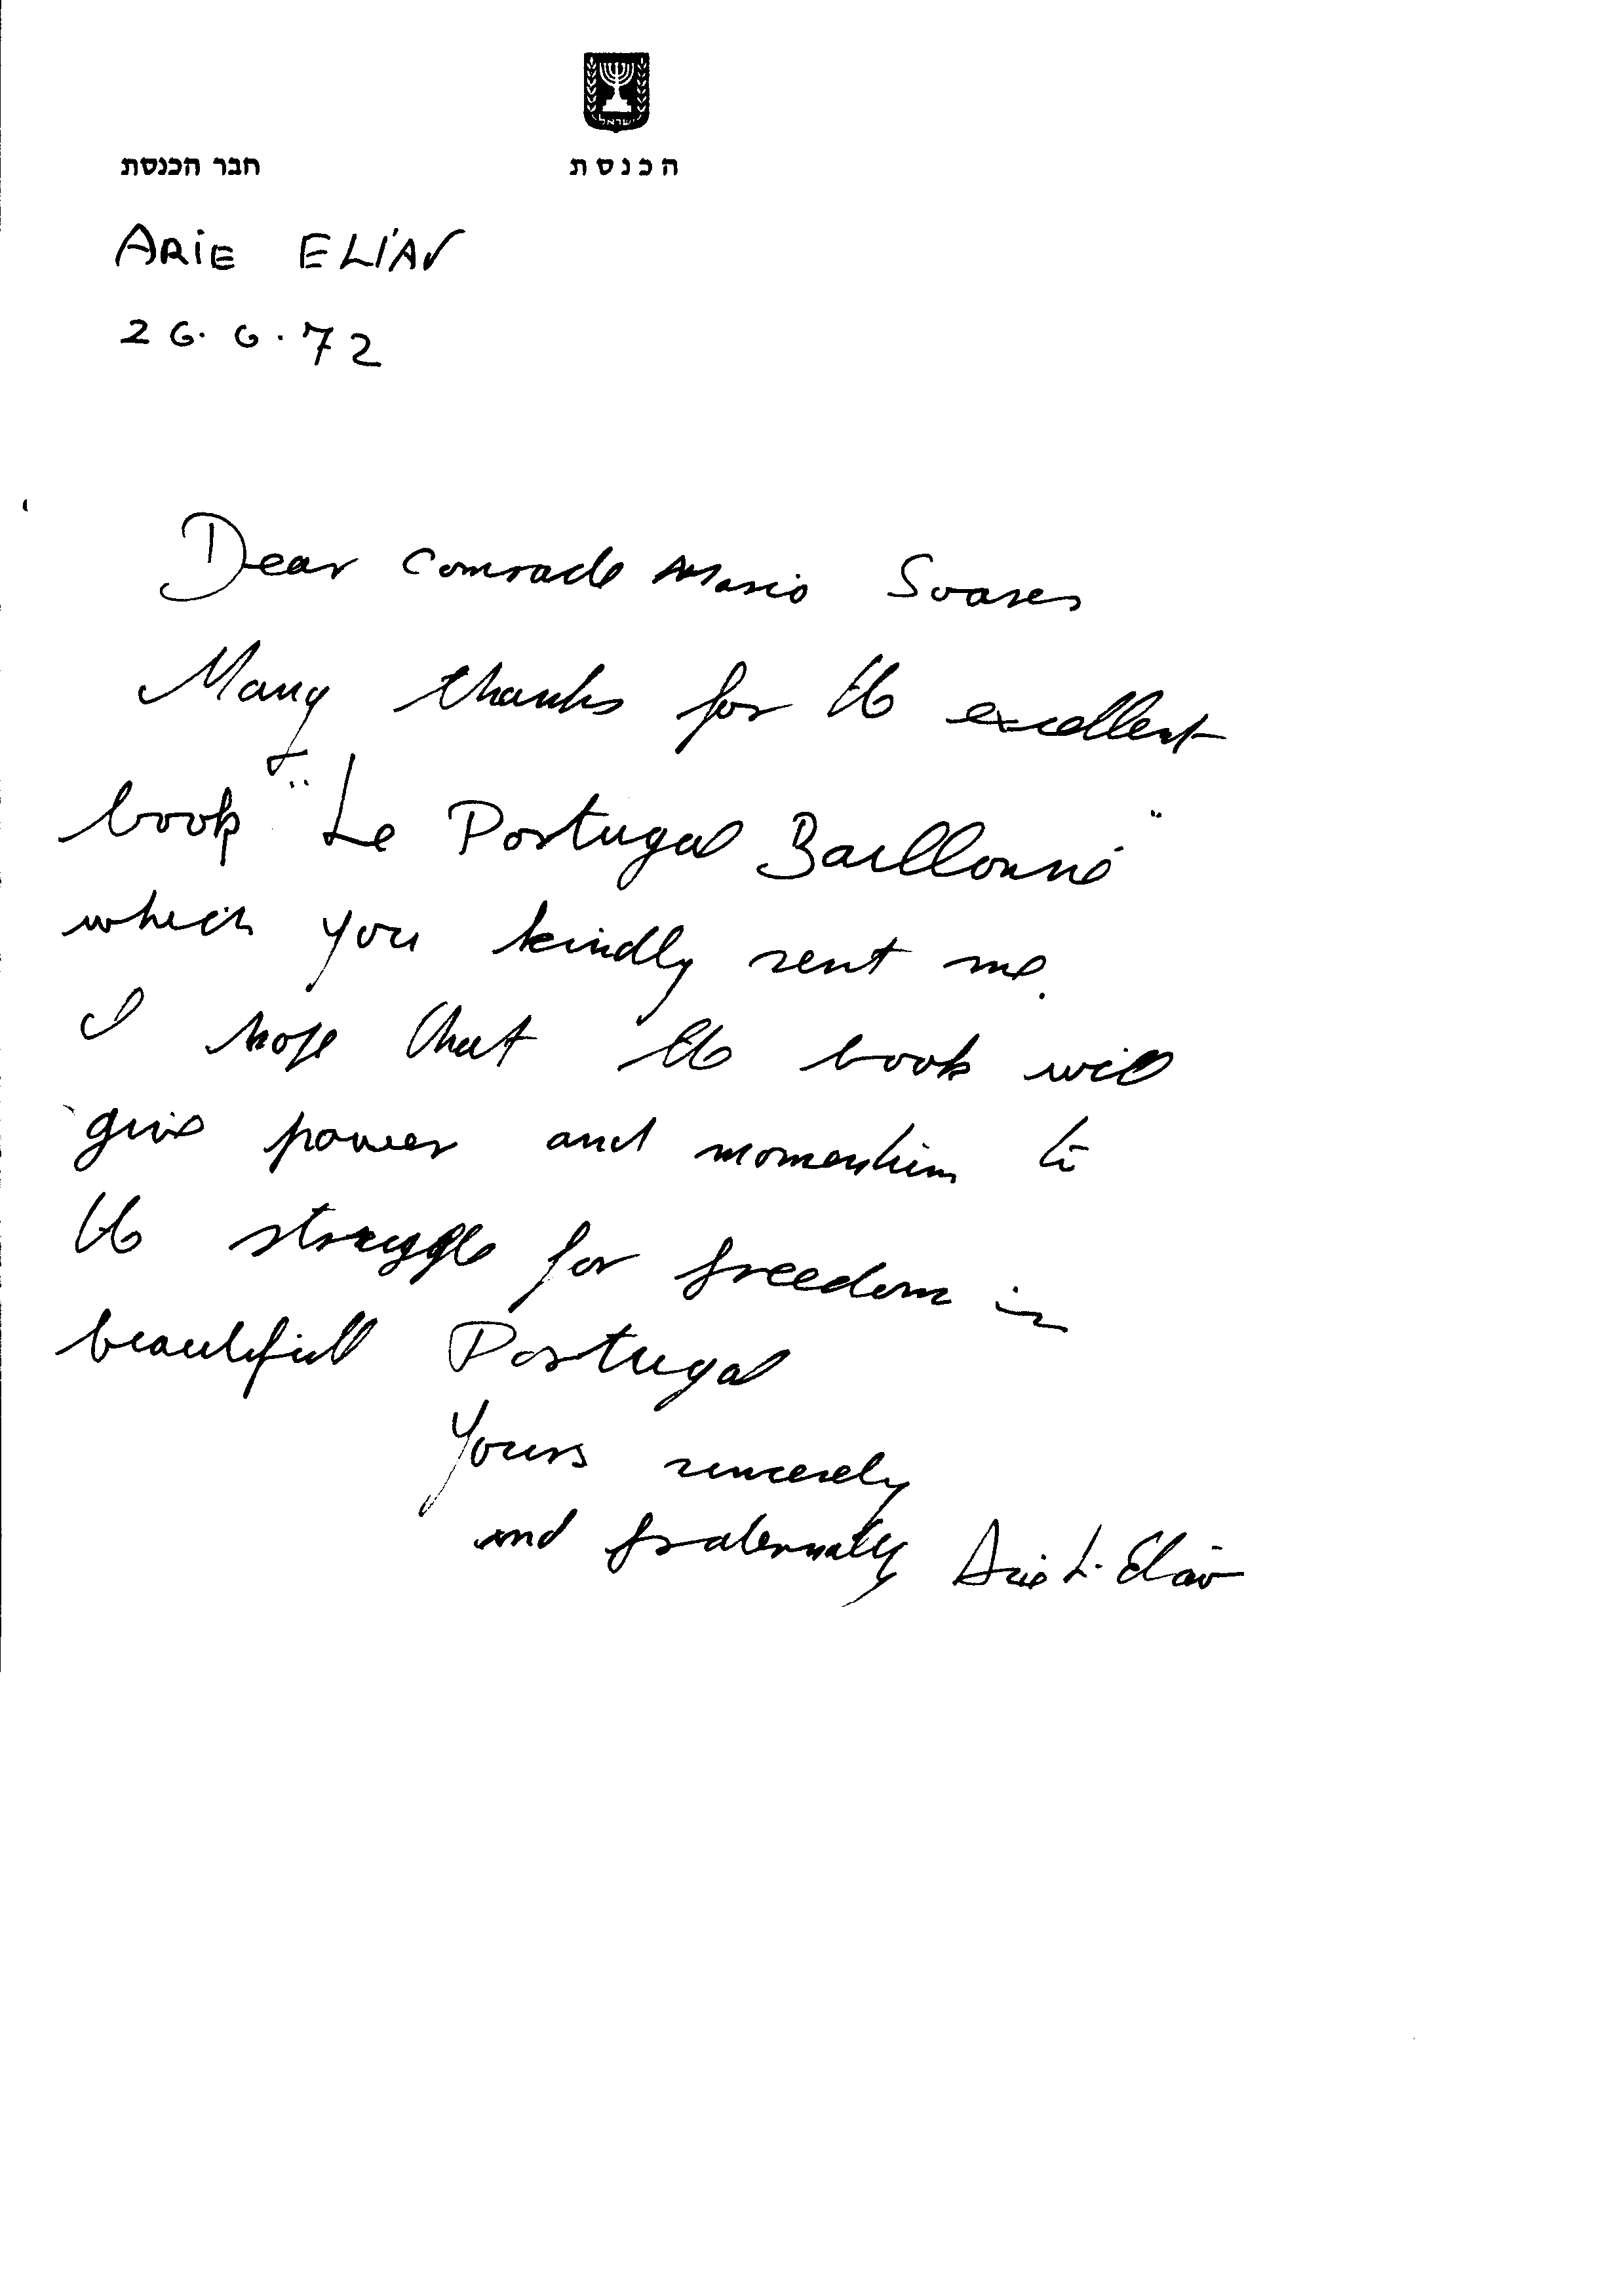 ישראל
חבר הכנסת הכנסת
ARIE ELIAV
26.6.72
Dear Comrade Mario Soares
Many thanks for the excellent
book "Le Portugal Baillonné"
which you kindly sent me.
I hope that the book will
give power and momentum to
the struggle for freedom in
beautifull Portugal
Yours sincerely
and fraternally Arie L. Eliav